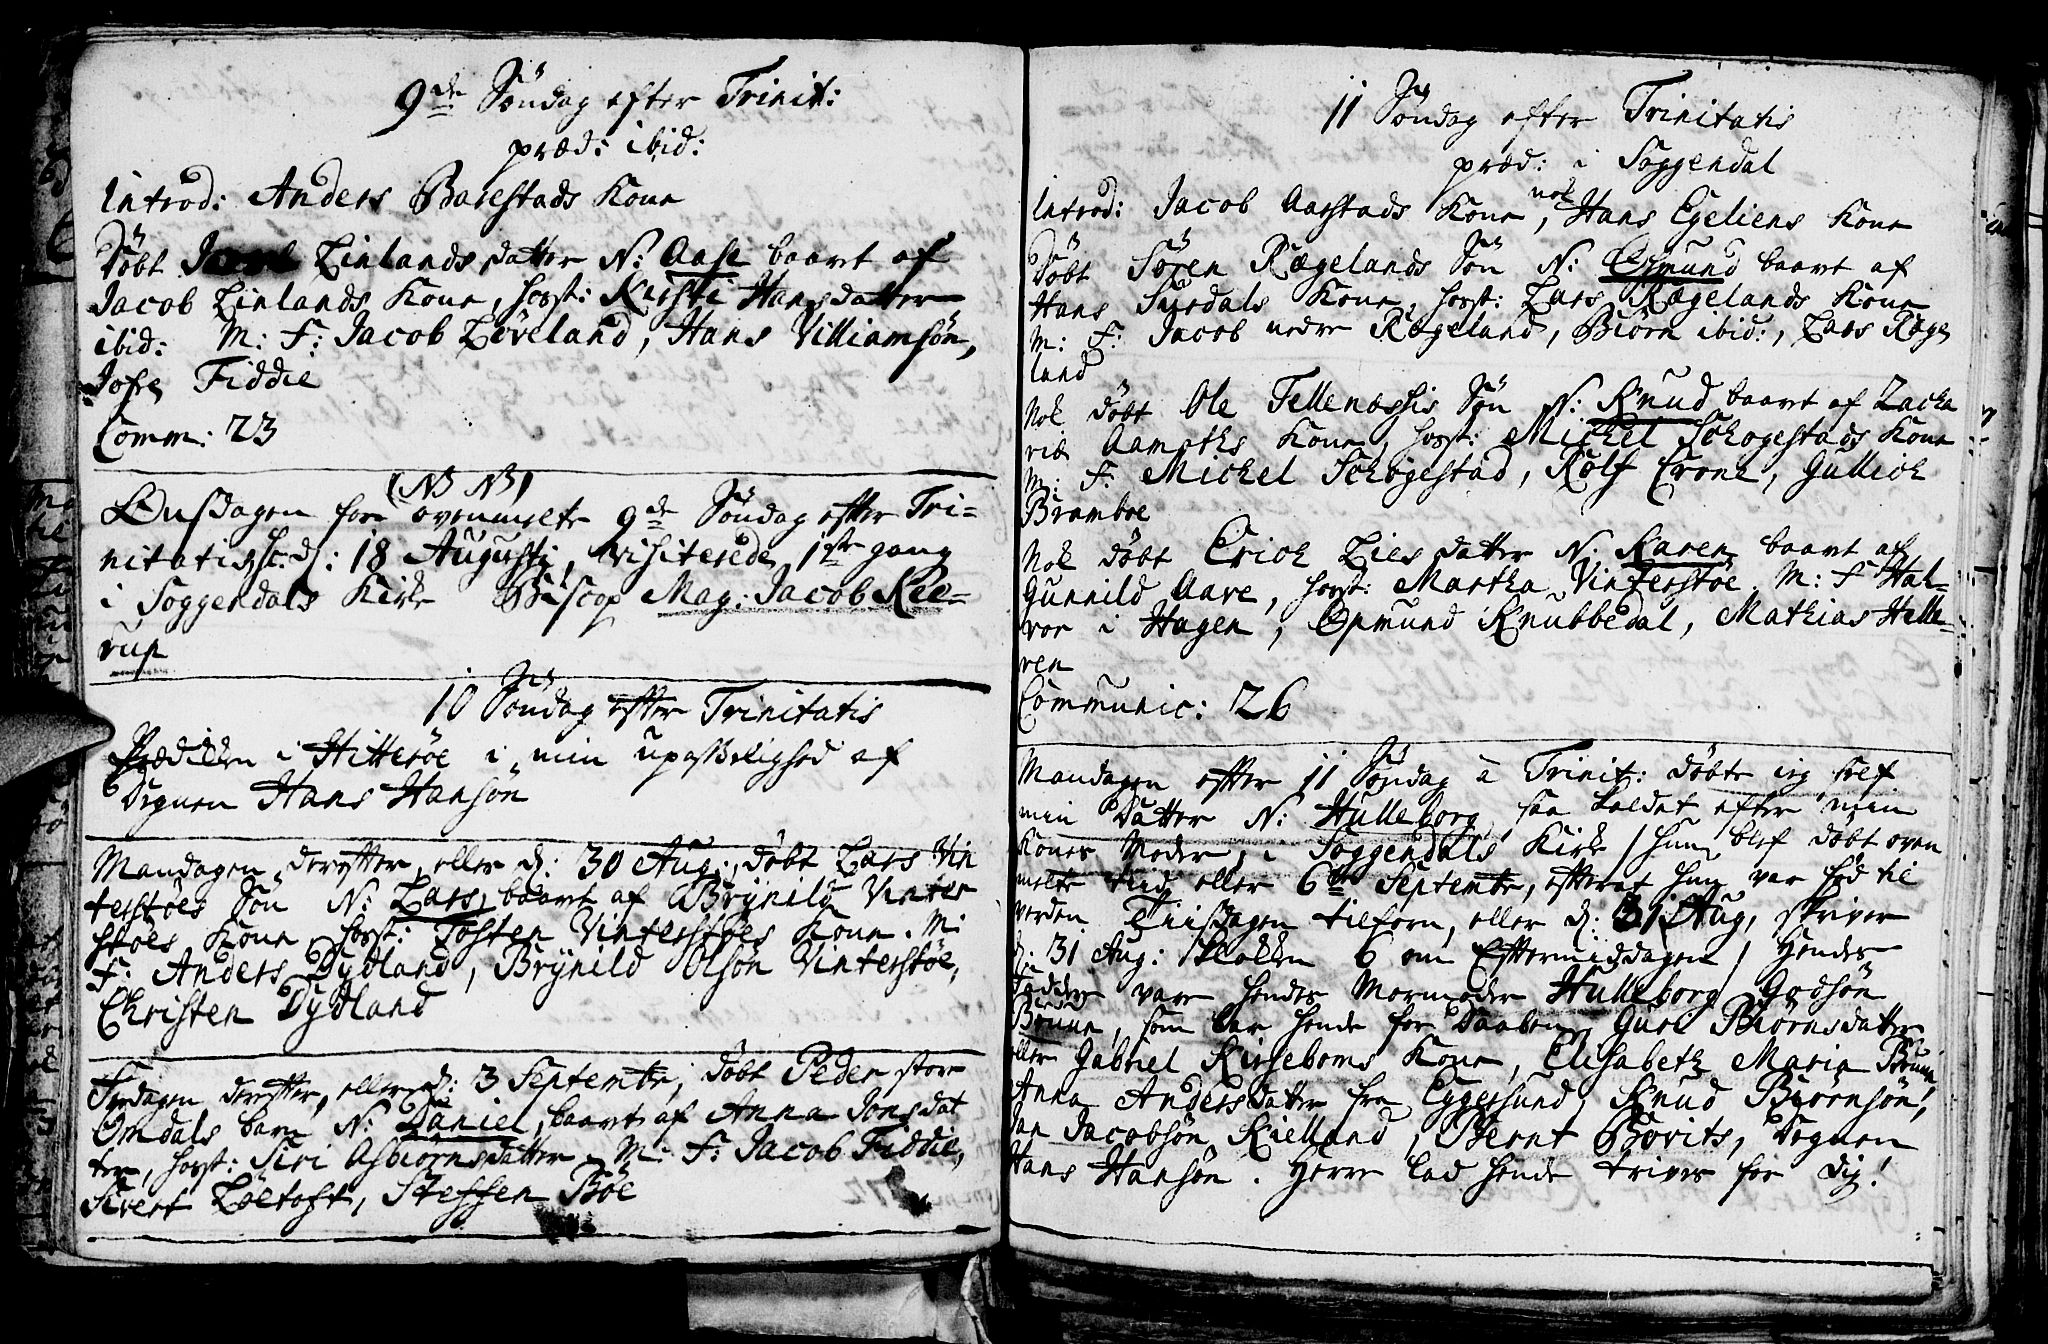 9de Söndag efter Trinit:
præd: ibid:
Introd: Anders Barestads Kone
Döbt Linlands datter N: Aase baaret af
Jacob Linlands Kone, forst: Kirsti Hansdatter
ibid: M: F: Jacob Löveland, Hans Villiamsön,
Fiddie
Comm: 23
(NB NB)
Onsdagen for ovenmelte 9de Söndag efter Tri-
nitatis sc: d: 18 Augusti, visiterede 1ste gang
i Soggendals Kirke Biscop Mag: Jacob Kie-
rup
10 Söndag efter Trinitatis
Prædiken i Hitteröe i min upasselighed af
Degnen Hans Hansön
Mandagen derefter, eller d: 30 Aug:, döbt Lars Vin
terstöes Sön N: Lars, baaret af Brynild Vinter
stöes Kone, forst: Tosten Vinterstöes Kone. M:
F: Anders Dydland, Brynild Olsön Vinterstöe,
Christen Dydland
Fredagen derefter, eller d: 3 Septembr, döbt Peder store
Omdals barn N: Daniel, baaret af Anna Jonsdat
ter, forst: Siri Asbiörnsdatter. M: F: Jacob Fiddie,
Sivert Löetoft, Steffen Böe
11 Söndag efter Trinitatis
præd: i Soggendal
Introd: Jacob Aarstads Kone, nok Hans Egeliens Kone
Döbt Sören Rægelands Sön N: Osmund baaret af
Hans Surdals Kone, forst: Lars Rægelands Kone
M: F: Jacob nedre Rægeland, Biörn ibid:, Lars Ræge
land
Nok döbt Ole Tellenæssis Sön N: Knud baaret af Zacha
ris Aamoths Kone, forst: Michel Schogestads Kone
M: F: Michel Schogestad, Rolf Crone, Gullich
Bramboe
Nok döbt Erich Lies datter N: Karen baaret af
Gunnild Aare, forst: Martha Vinterstöe. M: F Hal-
vor i Hagen, Osmund Knubbedal, Mathias Helle-
ren
Communic: 26
Mandagen efter 11 Söndag a Trinit: döbte ieg self
min Datter N: Hulleborg, saa kaldet efter min
Kones Moder, i Soggendals Kirke / hun blef döbt oven
melte tiid, eller 6te Septembr, efterat hun var föd til
verden Tiisdagen tilforn, eller d: 31 Aug, skriver
d: 31 Aug: Klokken 6 om Eftermiddagen / Hendes
Faddere vare hendes Mormoder Hulleborg Godsön
Bruun, som bar hende for Daaben, Guri Biörnsdatter
eller Gabriel Kirseboms Kone, Elisabeth Maria Bruun,
Anna Andersdatter fra Eggersund, Knud Biörnsön,
Jan Jacobsön Kielland, Bernt Bovits, Degnen
Hans Hansön. Herre lad hende trives for dig!